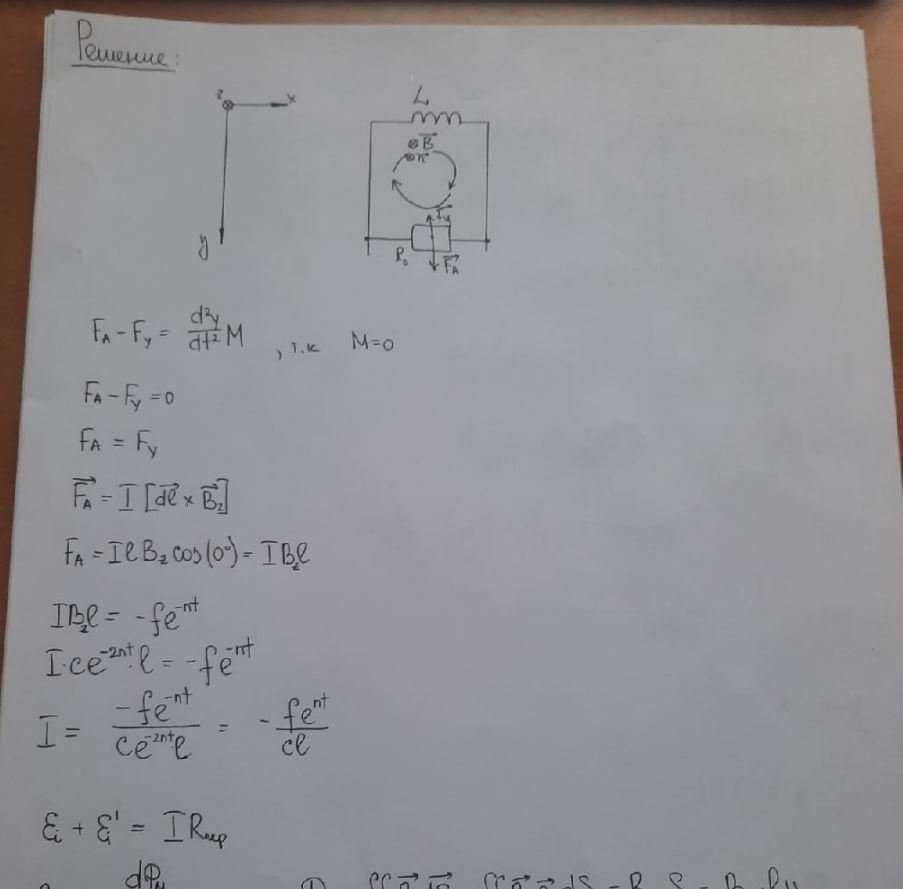 Решение:
z x
y
L
B⃗
n⃗
F⃗y
R₀ F⃗_A
F_A - F_y = d²y/dt² M , т.к M=0
F_A - F_y = 0
F_A = F_y
F⃗_A = I [dl⃗ × B⃗_z]
F_A = I l B_z cos(0°) = I B_z l
I B_z l = -fe^{-nt}
I·ce^{-2nt}·l = -fe^{-nt}
I = -fe^{-nt} / ce^{-2nt}l = - fe^{nt} / cl
ℰ_i + ℰ' = I R_пер